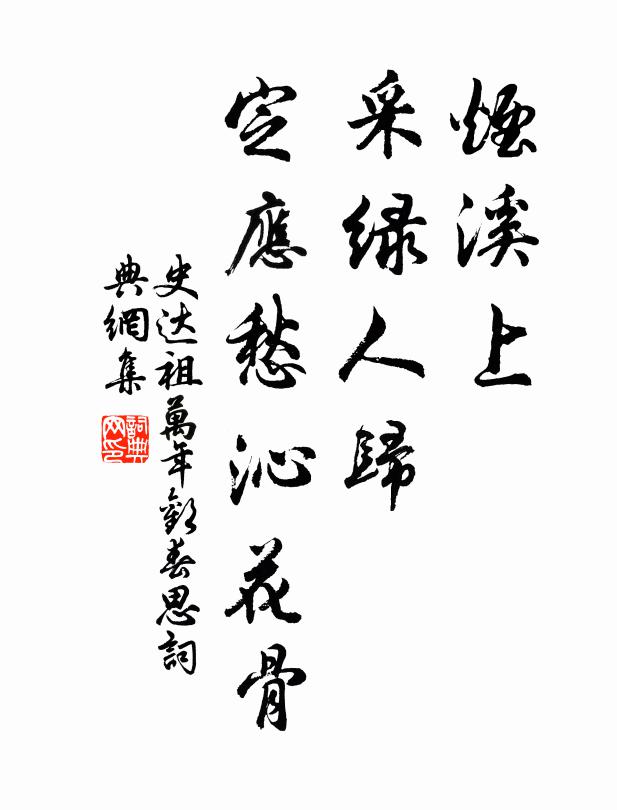 煙溪上
采绿人歸
定應愁沁花骨
史达祖萬年歡春思詞
典網集
詞典網印